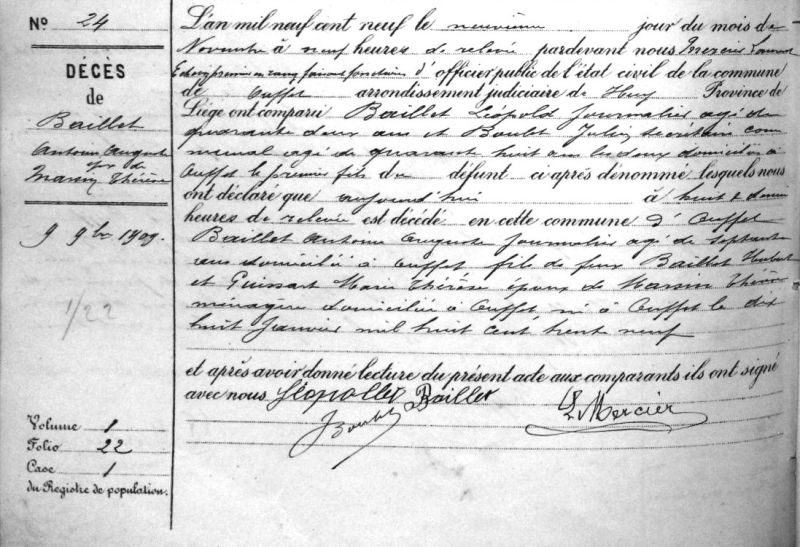 N° 24
DÉCÈS
de
Baillet
Antoine Auguste
ép de
Massin Thérèse
9 9bre 1909.
1/22
Volume 1
Folio 22
Case 1
du Registre de population.
L'an mil neuf cent neuf le neuvième jour du mois de
Novembre à neuf heures de relevée pardevant nous Mercier Laurent
Echevin premier en rang faisant fonctions d'officier public de l'état civil de la commune
de Ouffet arrondissement judiciaire de Huy Province de
Liège ont comparu Baillet Léopold Journalier agé de
quarante deux ans et Boulet Julien secrétaire com
munal agé de quarante huit ans les deux domiciliés à
Ouffet le premier fils du défunt ci après dénommé lesquels nous
ont déclaré que aujourd'hui à huit & demie
heures de relevée est décédé en cette commune d'Ouffet
Baillet Antoine Auguste Journalier agé de septante
ans domicilié à Ouffet fils de feux Baillet Hubert
et Guissart Marie Thérèse époux de Massin Thérèse
ménagère domiciliée à Ouffet né à Ouffet le dix
huit Janvier mil huit cent trente neuf
et après avoir donné lecture du présent acte aux comparants ils ont signé
avec nous Léopold Baillet
Boulet L Mercier